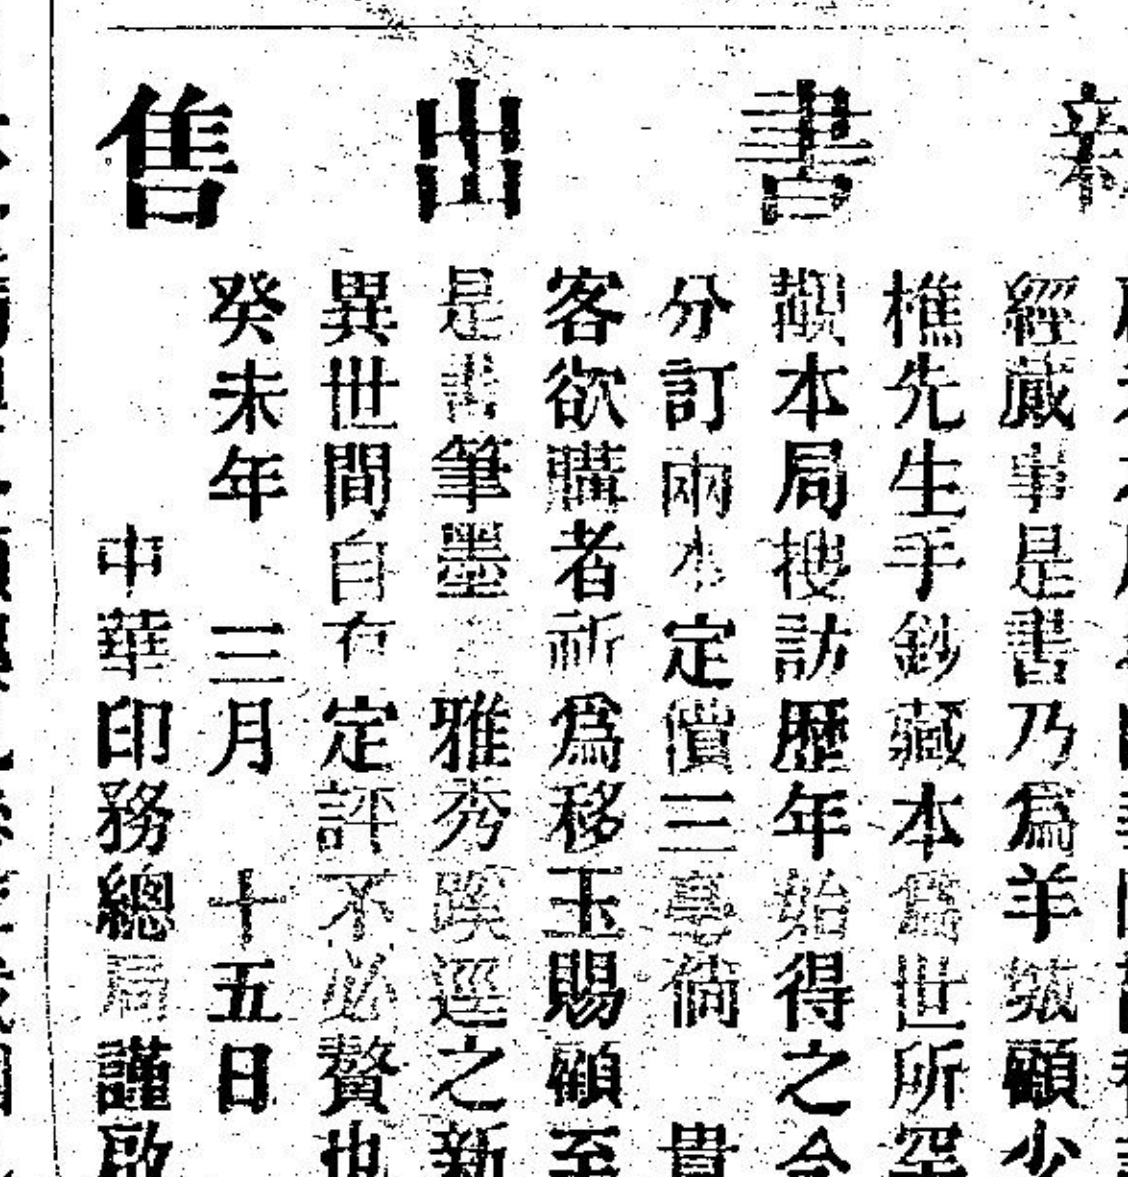 新書出售
經藏事是書乃爲羊城顧少
樵先生手鈔藏本爲世所罕
覯本局搜訪歷年始得之今
分訂兩本定價三毫倘　貴
客欲購者祈爲移玉賜顧至
是書筆墨　雅秀蹊逕之新
異世間自有定評不必贅也
癸未年　三月　十五日
中華印務總局謹啟